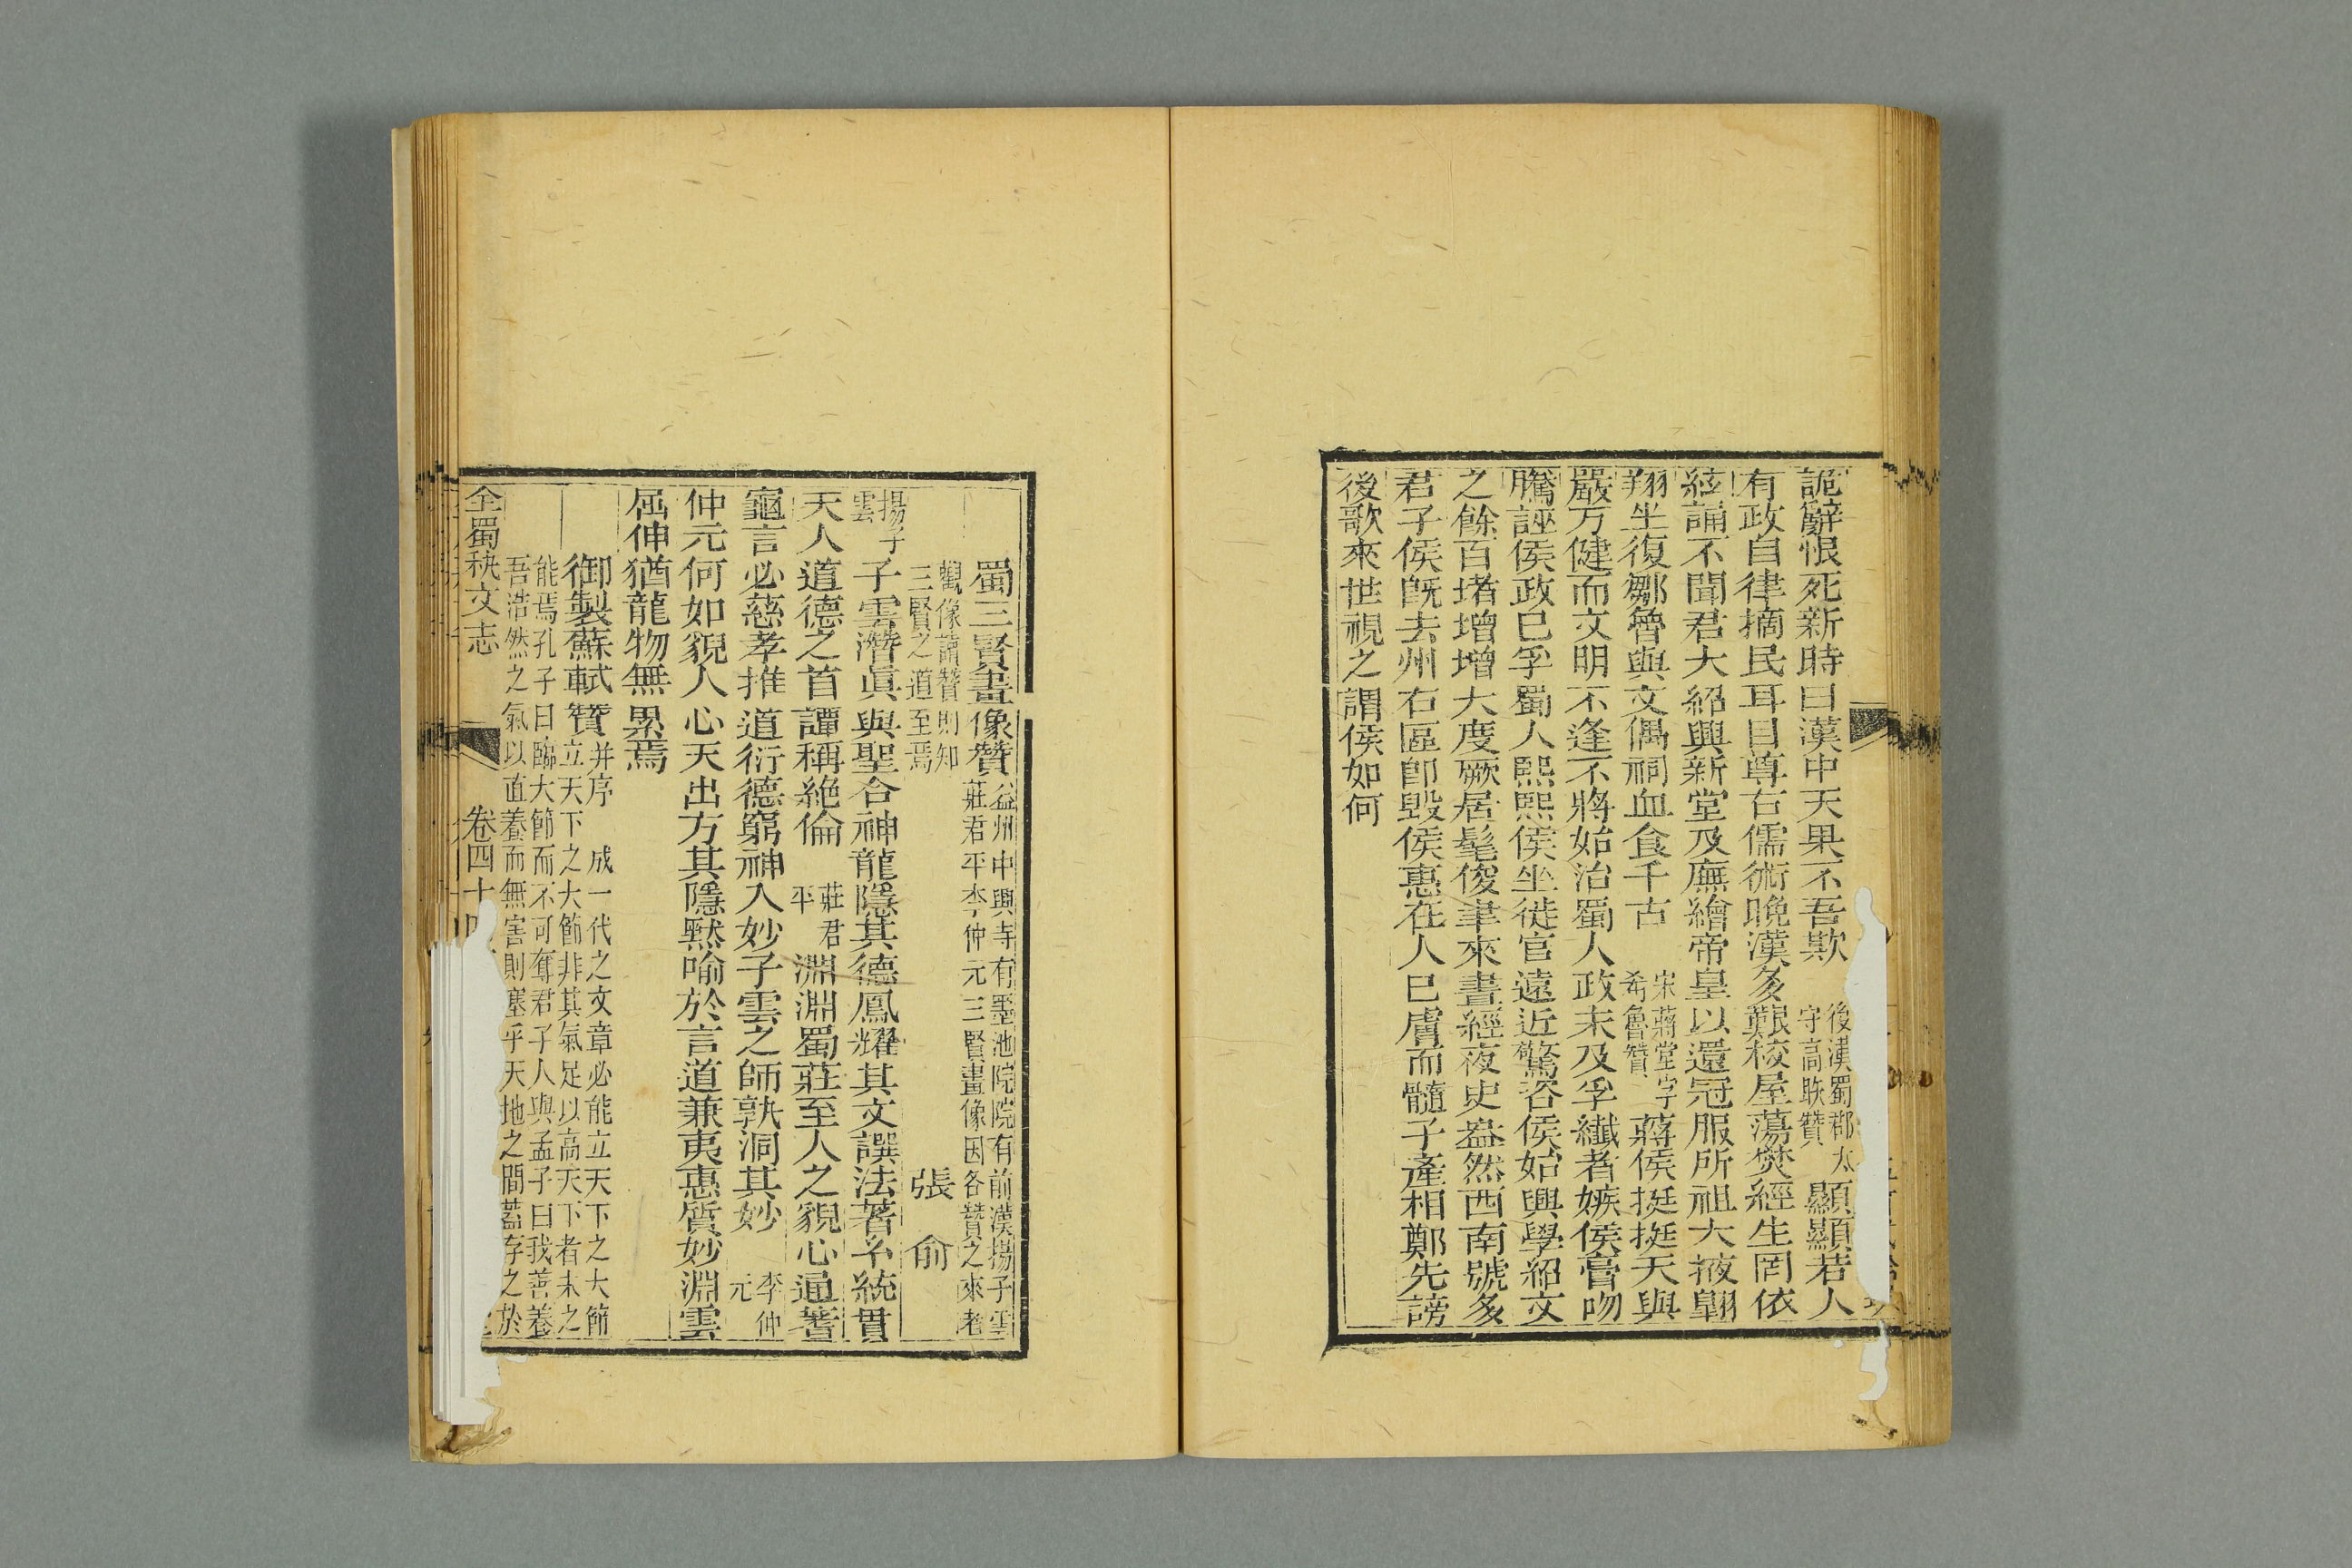 詭辭恨死新時曰漢中天果不吾欺後漢蜀郡太守高䀕贊顯顯若人
有政自律摘民耳目尊右儒術晚漢多艱校屋蕩焚經生罔依
絃誦不聞君大紹興新堂及廡繪帝皇以還冠服所祖大掖翺
翔坐復鄒魯與文偶祠血食千古宋蔣堂字希魯贊蔣侯挺挺天與
嚴方健而文明不逢不將始治蜀人政未及孚纖者嫉侯膏吻
騰誣侯政已孚蜀人熙熙侯坐徙官遠近驚咨侯始興學紹文
之餘百堵增增大度厥居髦俊聿來晝經夜史盎然西南號多
君子侯旣去州右區卽毀侯惠在人已膚而髓子產相鄭先謗
後歌來世視之謂侯如何
蜀三賢畫像贊益州中興寺有墨池院院有前漢揚子雲
莊君平李仲元三賢畫像因各贊之來者
觀像誦贊則知
三賢之道至焉
張俞
揚子雲子雲潛眞與聖合神龍隱其德鳳耀其文譔法著糸統貫
天人道德之首譚稱絶倫莊君平淵淵蜀莊至人之貌心通蓍
龜言必慈孝推道衍德窮神入妙子雲之師孰洞其妙李仲元
仲元何如貌人心天出方其隱默喻於言道兼夷惠質妙淵雲
屈伸猶龍物無累焉
御製蘇軾贊并序
成一代之文章必能立天下之大節
立天下之大節非其氣足以高天下者未之
能焉孔子曰臨大節而不可奪君子人與孟子曰我善養
吾浩然之氣以直養而無害則塞乎天地之間蓋存之於
全蜀秇文志
卷四十